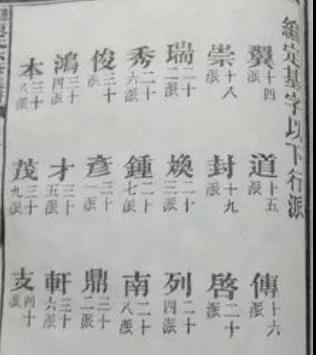 編定基字以下行派
翼十四派 道十五派 傳十六派
崇十八派 封十九派 啓二十派
瑞二十二派 煥二十三派 列二十四派
秀二十六派 鍾二十七派 南二十八派
俊三十派 彥三十一派 鼎三十二派
鴻三十四派 才三十五派 軒三十六派
本三十八派 茂三十九派 支四十派